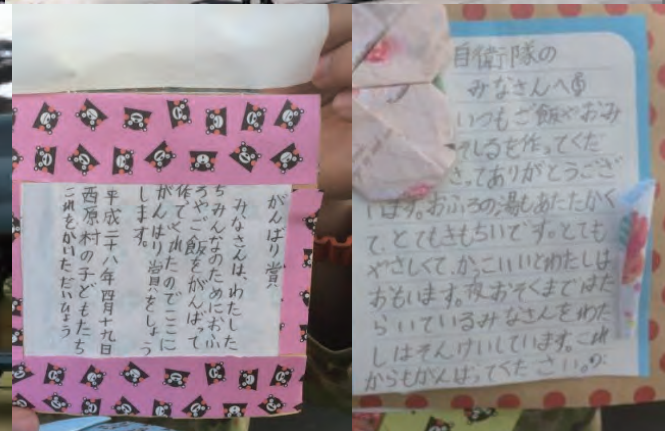 がんばり賞
みなさんは、わたした
ちみんなのためにおふ
ろやごはんをがんばって
作ってくれたのでここに
がんばり賞をしょう
します。
平成二十八年四月十九日
西原村の子どもたち
これをかいただいひょう
自衛隊の
みなさんへ
いつもご飯やおみ
そしるを作ってくだ
さってありがとうござ
います。おふろの湯もあたたかく
て、とてもきもちいです。とても
やさしくて、かっこいいとわたしは
おもいます。夜おそくまではた
らいているみなさんをわた
しはそんけいしています。これ
からもがんばってください。